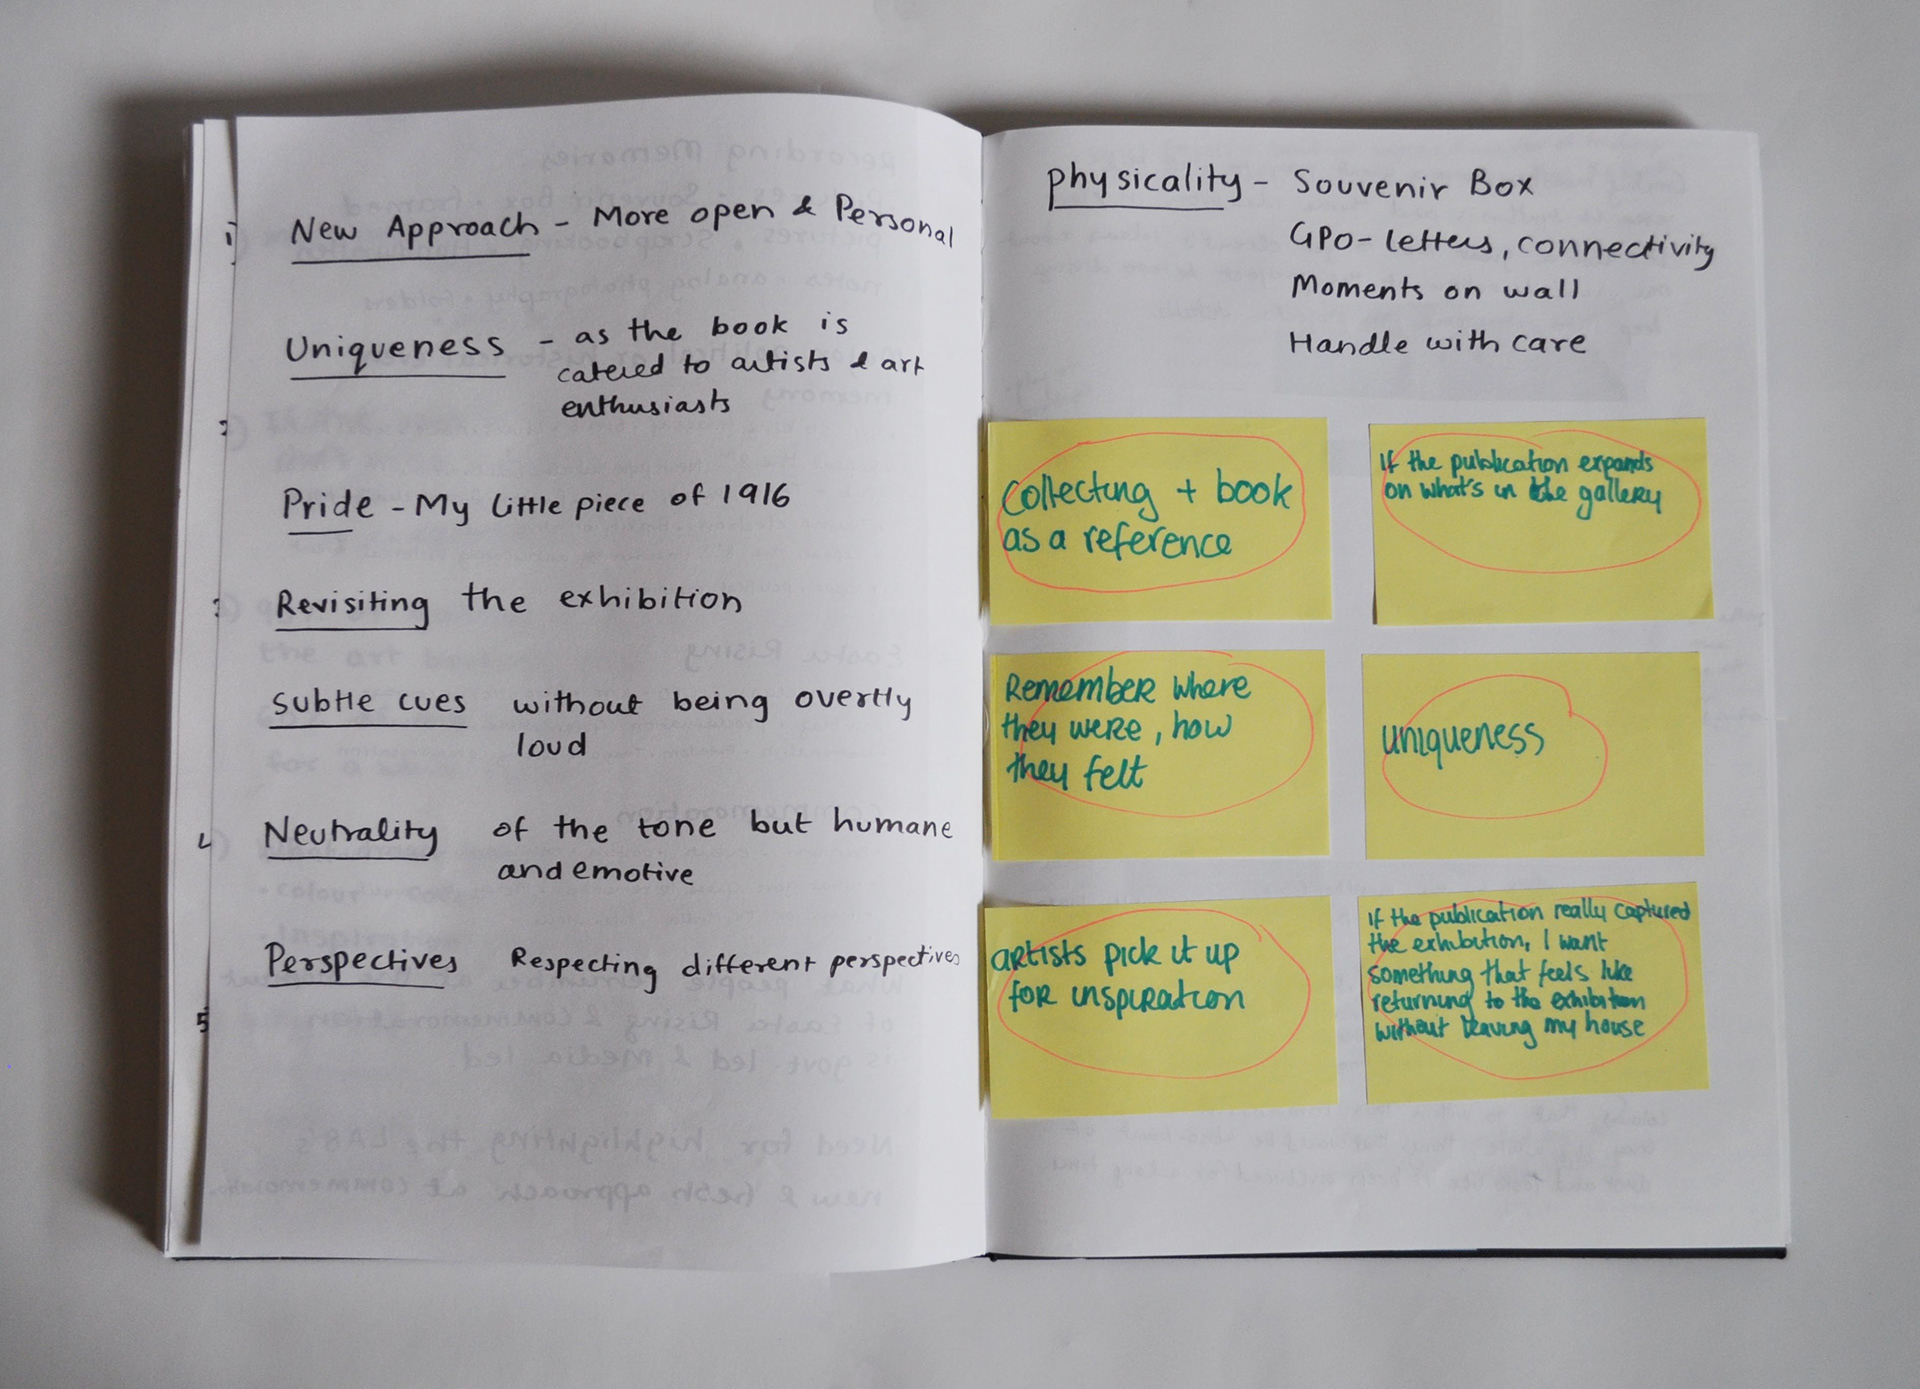 New Approach - More open & Personal
Uniqueness - as the book is
catered to artists & art
enthusiasts
Pride - My little piece of 1916
Revisiting the exhibition
subtle cues without being overtly
loud
Neutrality of the tone but humane
and emotive
Perspectives Respecting different perspectives
Physicality - Souvenir Box
GPO - letters, connectivity
Moments on wall
Handle with care
Collecting + book
as a reference
If the publication expands
on what's in the gallery
Remember where
they were, how
they felt
uniqueness
artists pick it up
for inspiration
If the publication really captured
the exhibition, I want
something that feels like
returning to the exhibition
without leaving my house